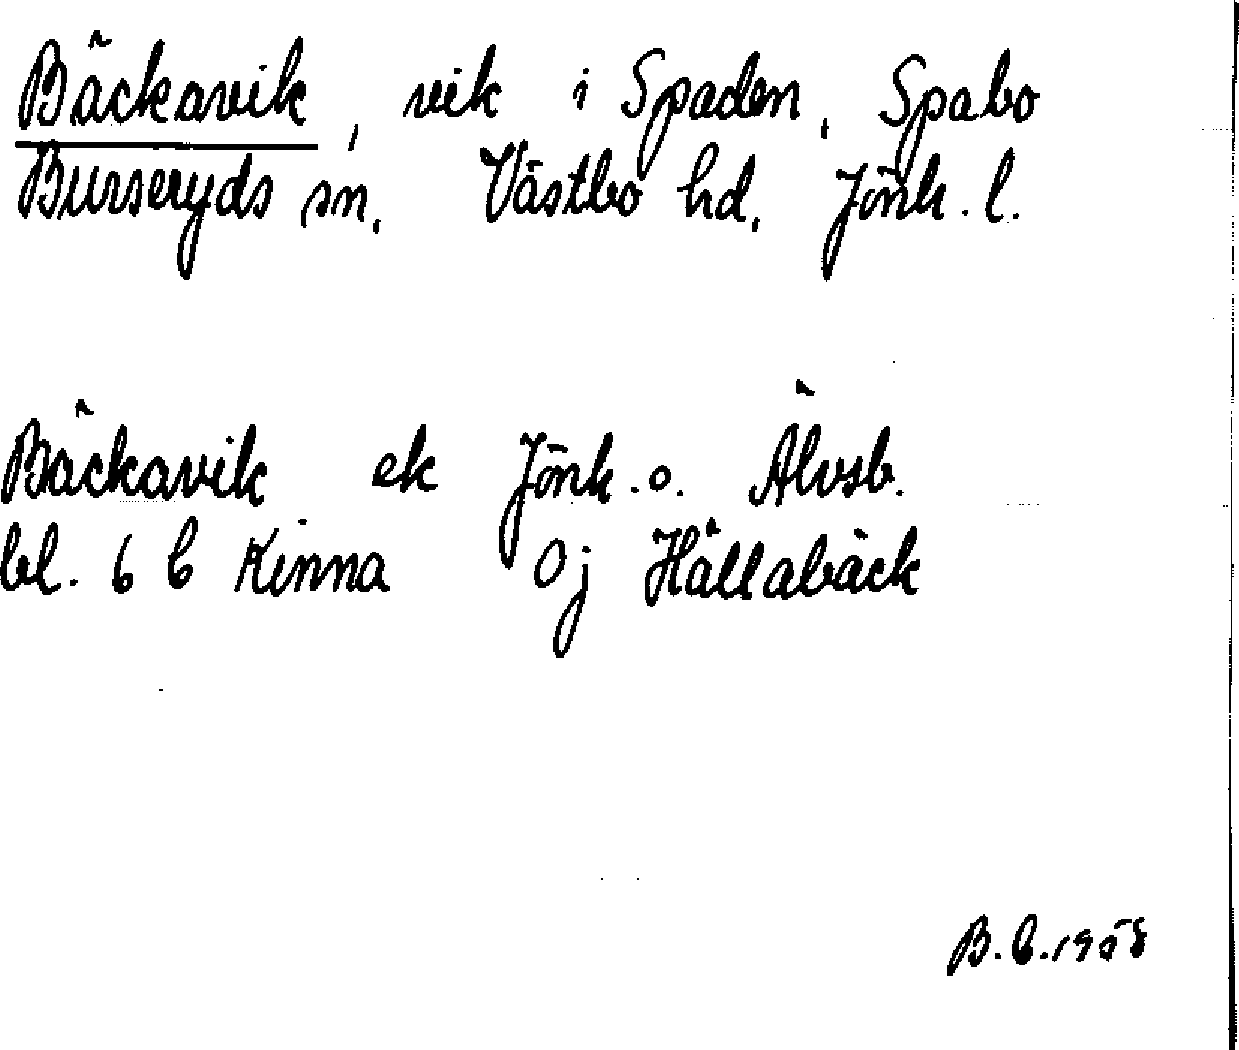 Bäckavik, vik i Spaden, Spabo
Burseryds sn, Västbo hd, Jönk. l.
Bäckavik ek Jönk. o. Älvsb.
bl. 6 C Kinna Oj Hållabäck
B.C.1958